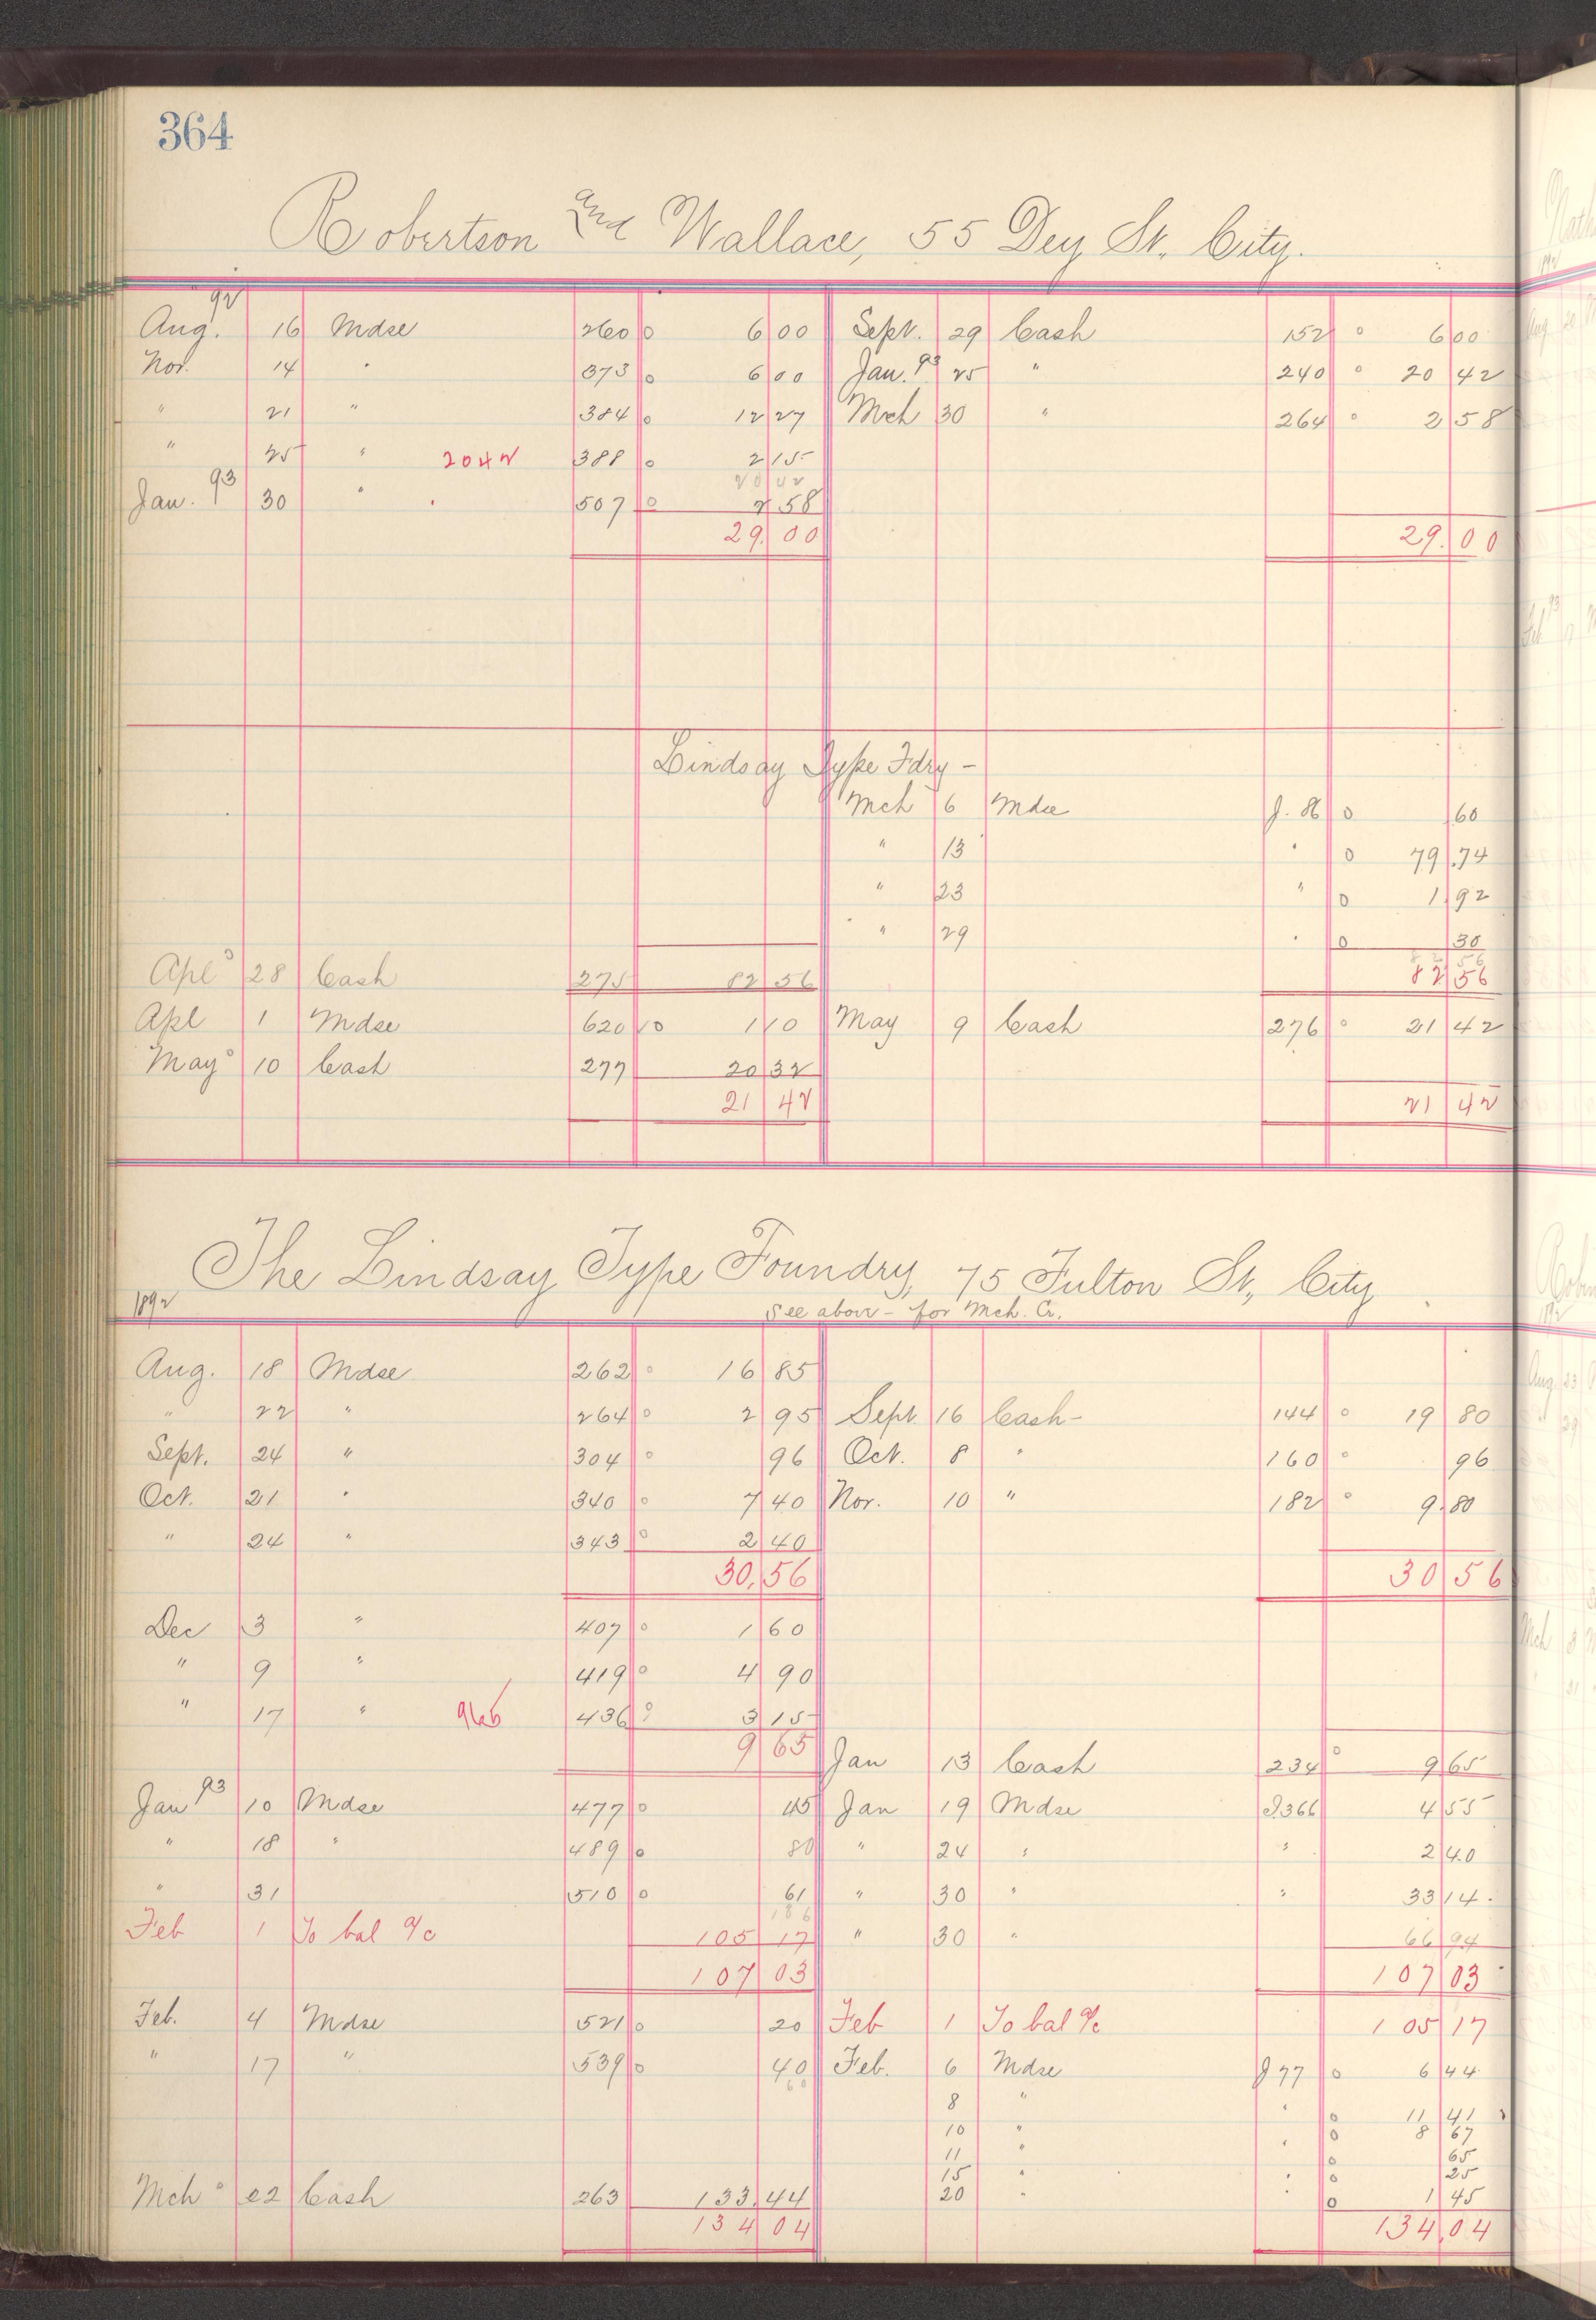 364
Robertson and Wallace, 55 Dey St. City.
92
Aug. 16 Mdse 260 0 6 00 Sept. 29 Cash 152 0 6 00
Nov. 14 " 373 0 6 00 Jan. 93 25 " 240 0 20 42
" 21 " 384 0 12 27 Mch 30 " 264 0 2 58
" 25 " 2042 388 0 2 15
20 42
Jan. 93 30 " 507 0 2 58
29.00 29.00
Lindsay Type Fdry -
Mch 6 Mdse J. 86 0 60
" 13 " 0 79.74
" 23 " 0 1 92
" 29 " 0 30
Apl 28 Cash 275 82 56 82 56
Apl 1 Mdse 620 0 1 10 May 9 Cash 276 0 21 42
May 10 Cash 277 20 32
21 42 21 42
The Lindsay Type Foundry, 75 Fulton St, City
1892 See above - for Mch. Cr.
Aug. 18 Mdse 262 0 16 85
" 22 " 264 0 2 95 Sept. 16 Cash - 144 0 19 80
Sept. 24 " 304 0 96 Oct. 8 " 160 0 96
Oct. 21 " 340 0 7 40 Nov. 10 " 182 0 9.80
" 24 " 343 0 2 40
30.56 30 56
Dec 3 " 407 0 1 60
" 9 " 419 0 4 90
" 17 " 965 436 0 3 15
9 65 Jan 13 Cash 234 0 9 65
Jan 93 10 Mdse 477 0 45 Jan 19 Mdse J.366 4 55
" 18 " 489 0 80 " 24 " " 2 40
" 31 510 0 61 " 30 " " 33 14
1 86
Feb 1 To bal a/c 105 17 " 30 " 66 94
107 03 107 03
Feb. 4 Mdse 521 0 20 Feb 1 To bal a/c 105 17
" 17 " 539 0 40 Feb. 6 Mdse J 77 0 6 44
60
8 " " 0 11 41
10 " " 0 8 67
11 " 0 65
15 " " 0 25
Mch 22 Cash 263 133.44 20 " " 0 1 45
134 04 134.04